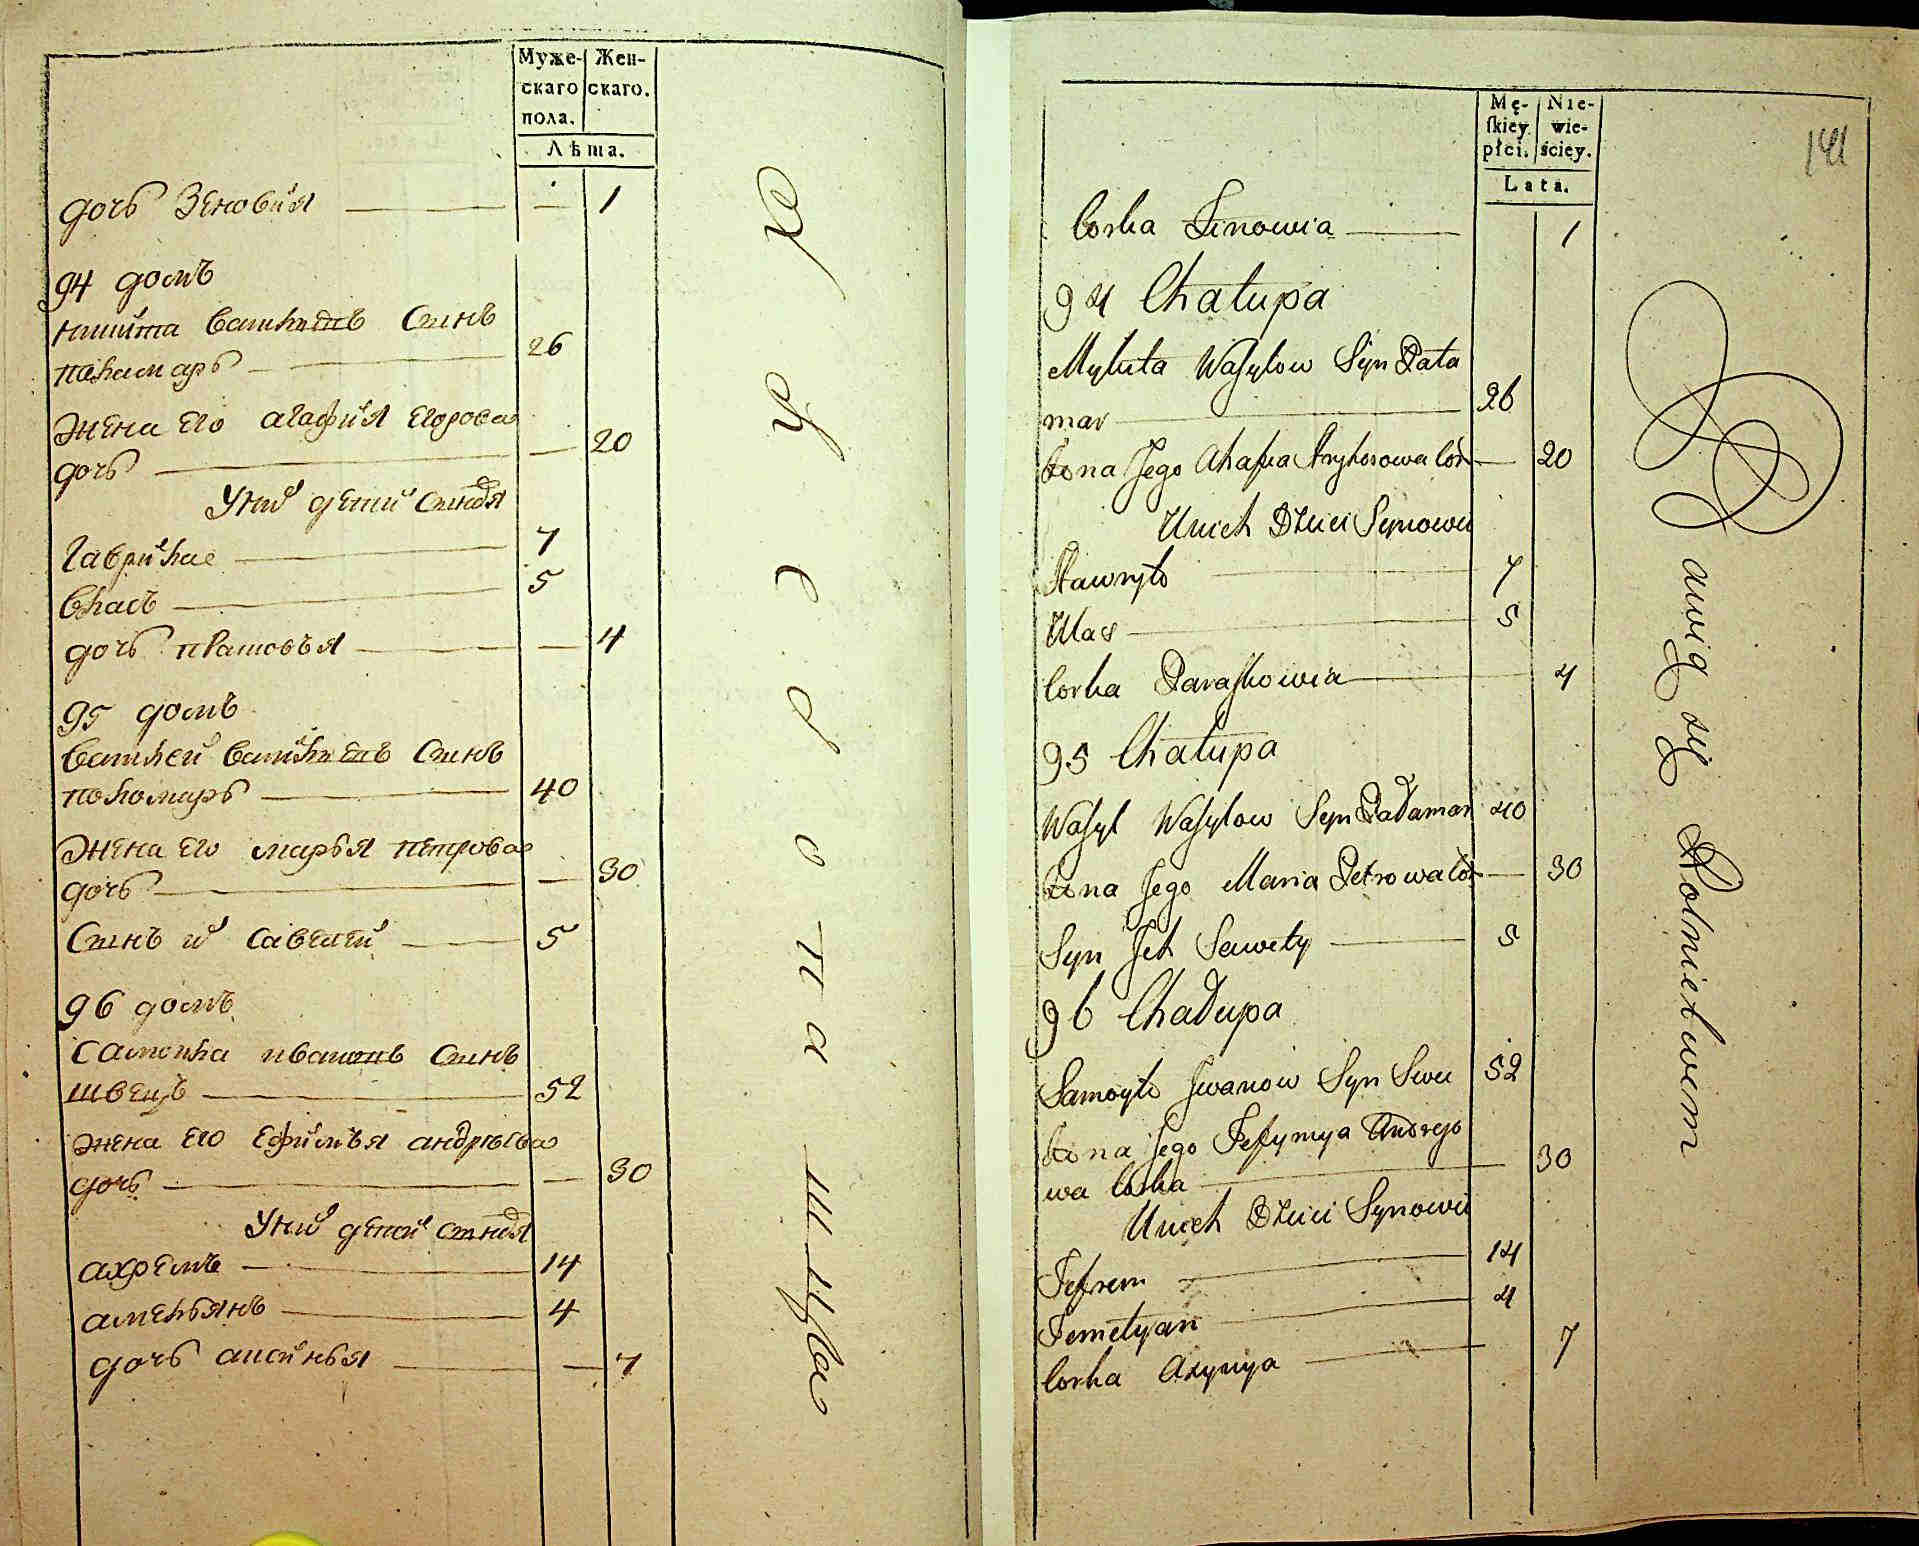 Муже-
скаго
пола.
Жен-
скаго.
Лѣта.
дочь Зеновия — 1
94 домъ
никита васильевъ Сынъ
панамарь — 26
Жена Его агафия Егорова
дочь — 20
У них дети Сыновя
Гаврила — 7
влас — 5
дочь — 4
95 домъ
василей васильевъ Сынъ
пономарь — 40
Жена Его марья петрова
дочь — 30
Сынъ их савелей — 5
96 домъ
самоила ивановъ Сынъ
швецъ — 52
Жена Его Ефимья андрѣева
дочь — 30
У них детей Сыновя
ахремъ — 14
амельянъ — 4
дочь — 7
Mę-
ſkiey
płci.
Nie-
wie-
ściey.
Lata.
141
Corka Zinowia — 1
94 Chałupa
Mykita Wasylow Syn Pała
mar — 26
Żona Jego Ahafia Hryhorowa Cor — 20
U nich Dzieci Synowie
Hawryło — 7
Ułas — 5
Corka Paraskowia — 4
95 Chałupa
Wasyl Wasylow Syn Pałamar 40
Żona Jego Maria Petrowa Cor — 30
Syn Ich Sawety — 5
96 Chałupa
Samoyło Iwanow Syn Swec 52
Żona Jego Jefymya Andrejo
wa Corka — 30
U nich Dzieci Synowie
Jefrem — 14
Jemelyan — 4
Corka Axynya — 7
Bawią się Rolnictwem